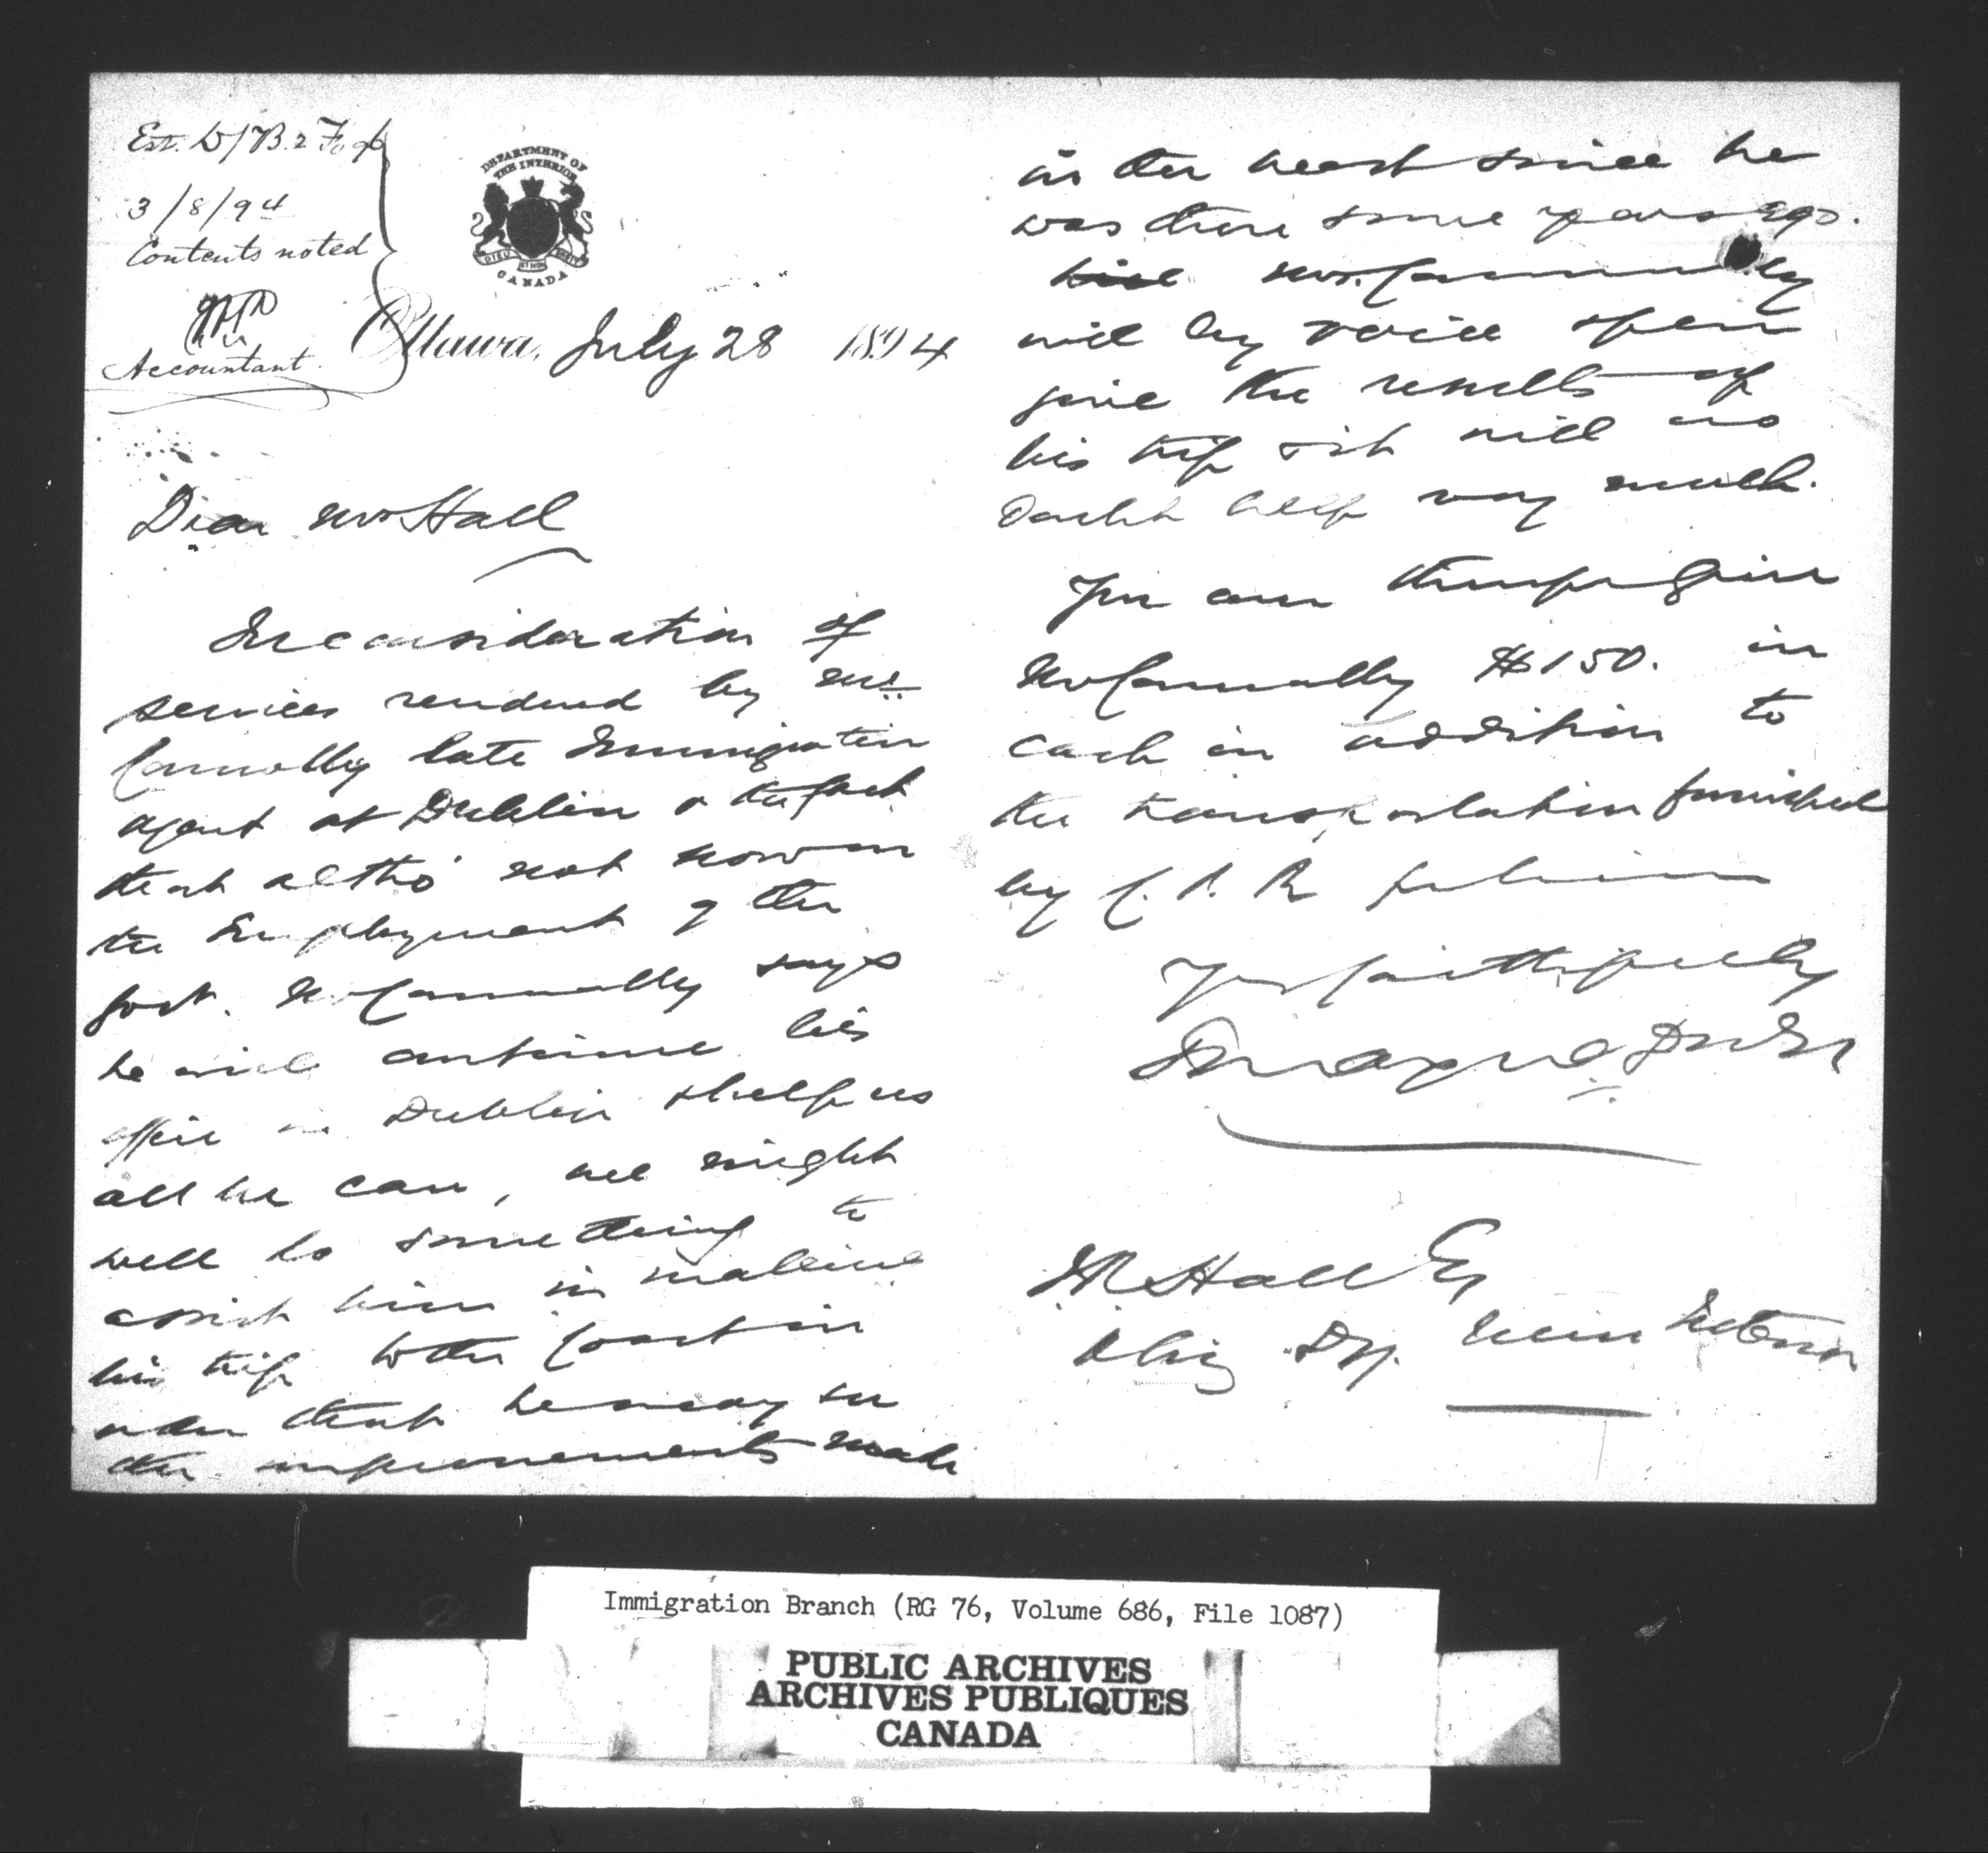 Est. D/B. 2 Fo
3/8/94
Contents noted
Accountant.
DEPARTMENT OF
THE INTERIOR
DIEU ET MON DROIT
CANADA
Ottawa, July 28 1894
Dear Mr Hall
In consideration of
services rendered by Mr.
Connolly late Immigration
agent at Dublin & the fact
that altho' not now in
the Employment of the
Govt. Mr Connolly says
he will continue his
office in Dublin & help us
all he can, we might
well do something to
assist him in making
his trip to the Coast in
order that he may see
the improvements made
in the west since he
was there some years ago.
Mr. Connolly
will by voice & pen
give the results of
his trip & it will no
doubt help very much.
You can therefore give
Mr Connolly $150. in
cash in addition to
the transportation furnished
by C. P. R
Yrs faithfully
T Mayne Daly
J R Hall Esq
Dep. Min Interior
Immigration Branch (RG 76, Volume 686, File 1087)
PUBLIC ARCHIVES
ARCHIVES PUBLIQUES
CANADA